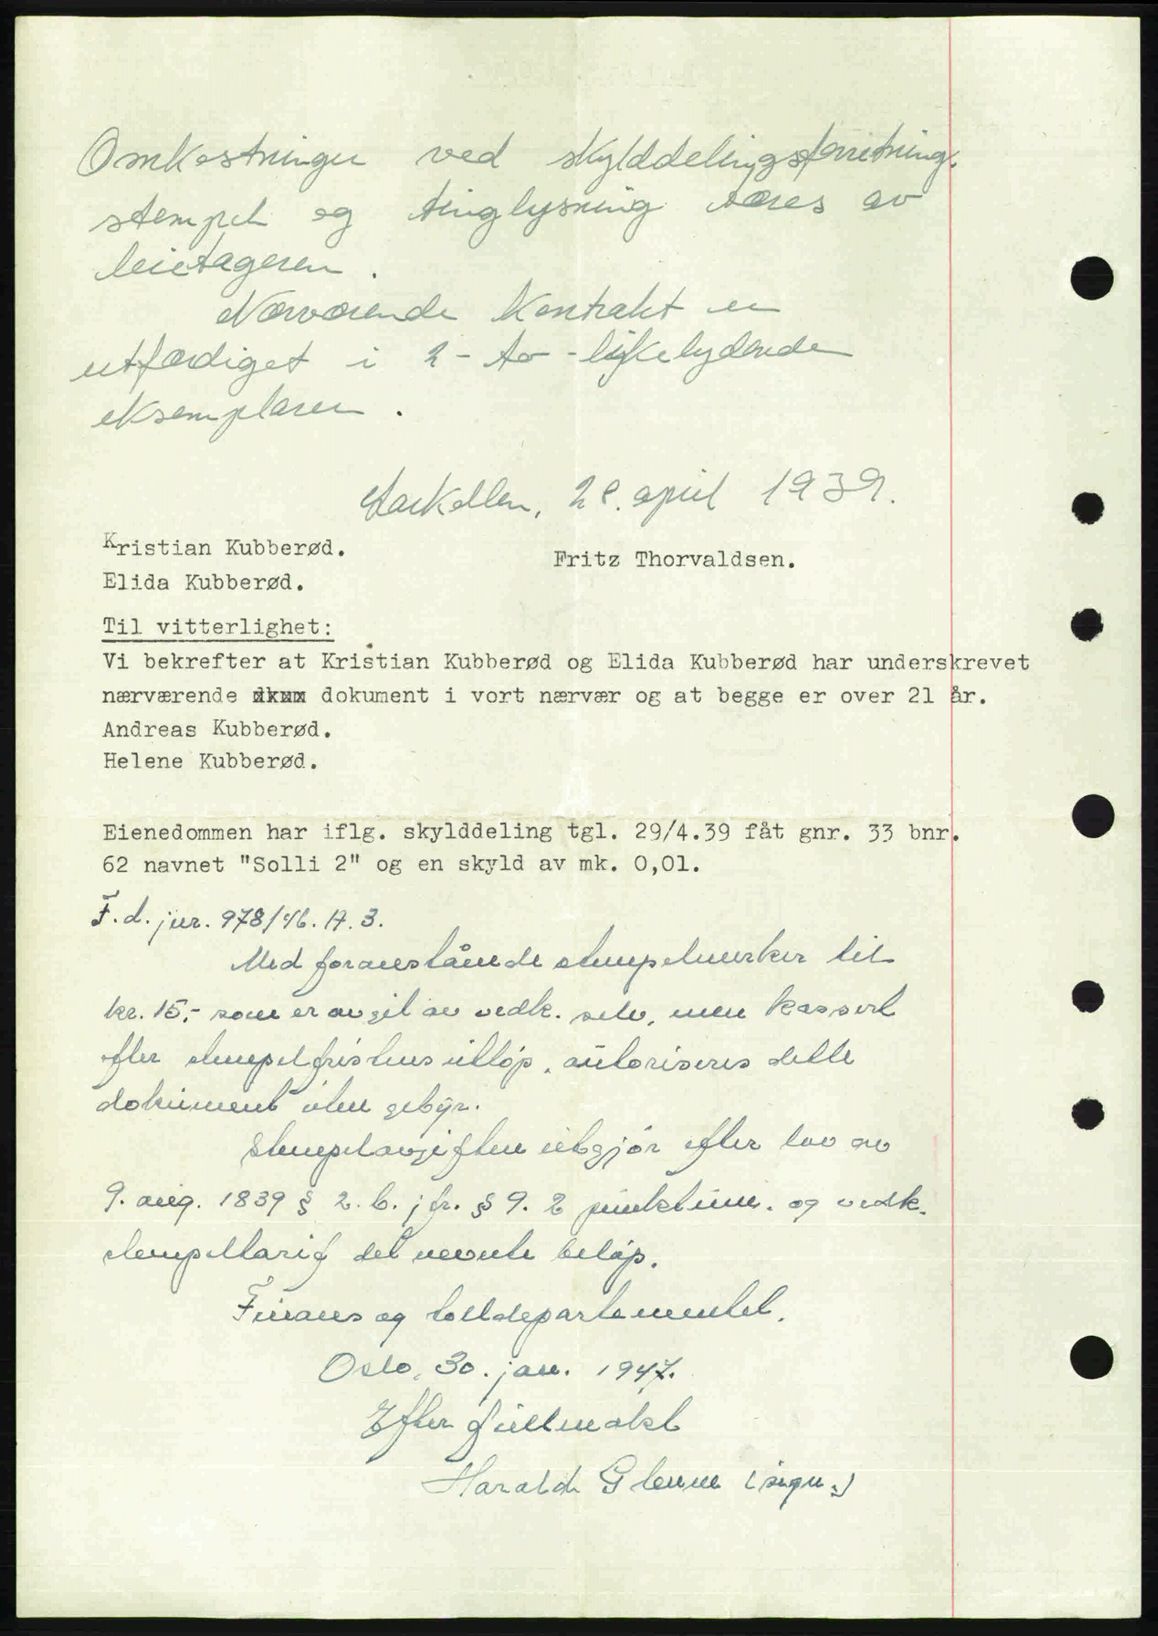 Omkostninger ved skylddelingsforretning.
stempel og tinglysning bæres av
leietageren.
Nærværende kontrakt er
utfærdiget i 2 - to - likelydende
eksemplarer.
28. april 1939.
Kristian Kubberød.
Fritz Thorvaldsen.
Elida Kubberød.
Til vitterlighet:
Vi bekrefter at Kristian Kubberød og Elida Kubberød har underskrevet
nærværende dokument i vort nærvær og at begge er over 21 år.
Andreas Kubberød.
Helene Kubberød.
Eienedommen har iflg. skylddeling tgl. 29/4.39 fåt gnr. 33 bnr.
62 navnet "Solli 2" og en skyld av mk. 0,01.
F.d. jnr. 978/46. A. 3.
Med foranstående stempelmerker til
kr. 15,- som er avgit av vedk. selv, men kassert
efter stempelfristens utløp, autoriseres dette
dokument uten gebyr.
Stempelavgiften utgjør efter lov av
9. aug. 1839 § 2. b. jfr. § 9. 2 punktum. og vedk.
stempeltarif det nevnte beløp.
Finans og tolldepartementet.
Oslo, 30. jan. 1947.
Efter fullmakt
Harald Glenne (sign.)